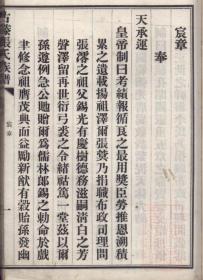 宸章
奉
天承運
皇帝制曰考績報循良之最用獎臣勞推恩溯積
累之遺載揚祖澤爾張　乃捐職布政司理問
張澪之祖父錫光有慶樹德務滋嗣清白之芳
聲澤留再世衍弓裘之令緒祜篤一堂茲以爾
孫遵例急公貤贈爾爲儒林郎錫之勅命於戲
聿修念祖膺茂典而益勵新猷有穀貽孫發幽
張氏族譜
宸章
一